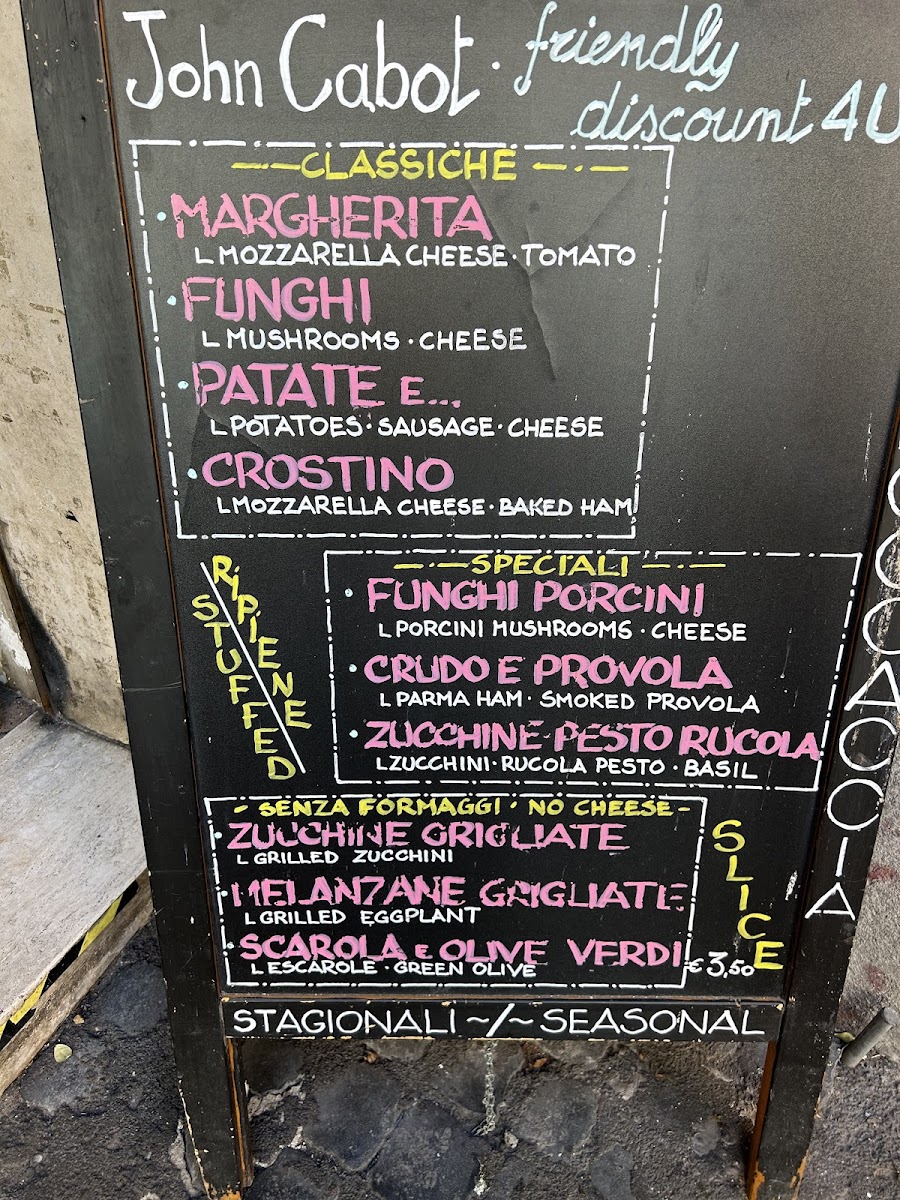 John Cabot · friendly
discount 4U
CLASSICHE
· MARGHERITA
MOZZARELLA CHEESE · TOMATO
· FUNGHI
MUSHROOMS · CHEESE
· PATATE E...
POTATOES · SAUSAGE · CHEESE
· CROSTINO
MOZZARELLA CHEESE · BAKED HAM
RIPIENE
STUFFED
SPECIALI
· FUNGHI PORCINI
PORCINI MUSHROOMS · CHEESE
· CRUDO E PROVOLA
PARMA HAM · SMOKED PROVOLA
· ZUCCHINE PESTO RUCOLA
ZUCCHINI · RUCOLA PESTO · BASIL
- SENZA FORMAGGI · NO CHEESE -
· ZUCCHINE GRIGLIATE
GRILLED ZUCCHINI
· MELANZANE GRIGLIATE
GRILLED EGGPLANT
· SCAROLA E OLIVE VERDI
ESCAROLE · GREEN OLIVE
SLICE
€ 3,50
STAGIONALI ~/~ SEASONAL